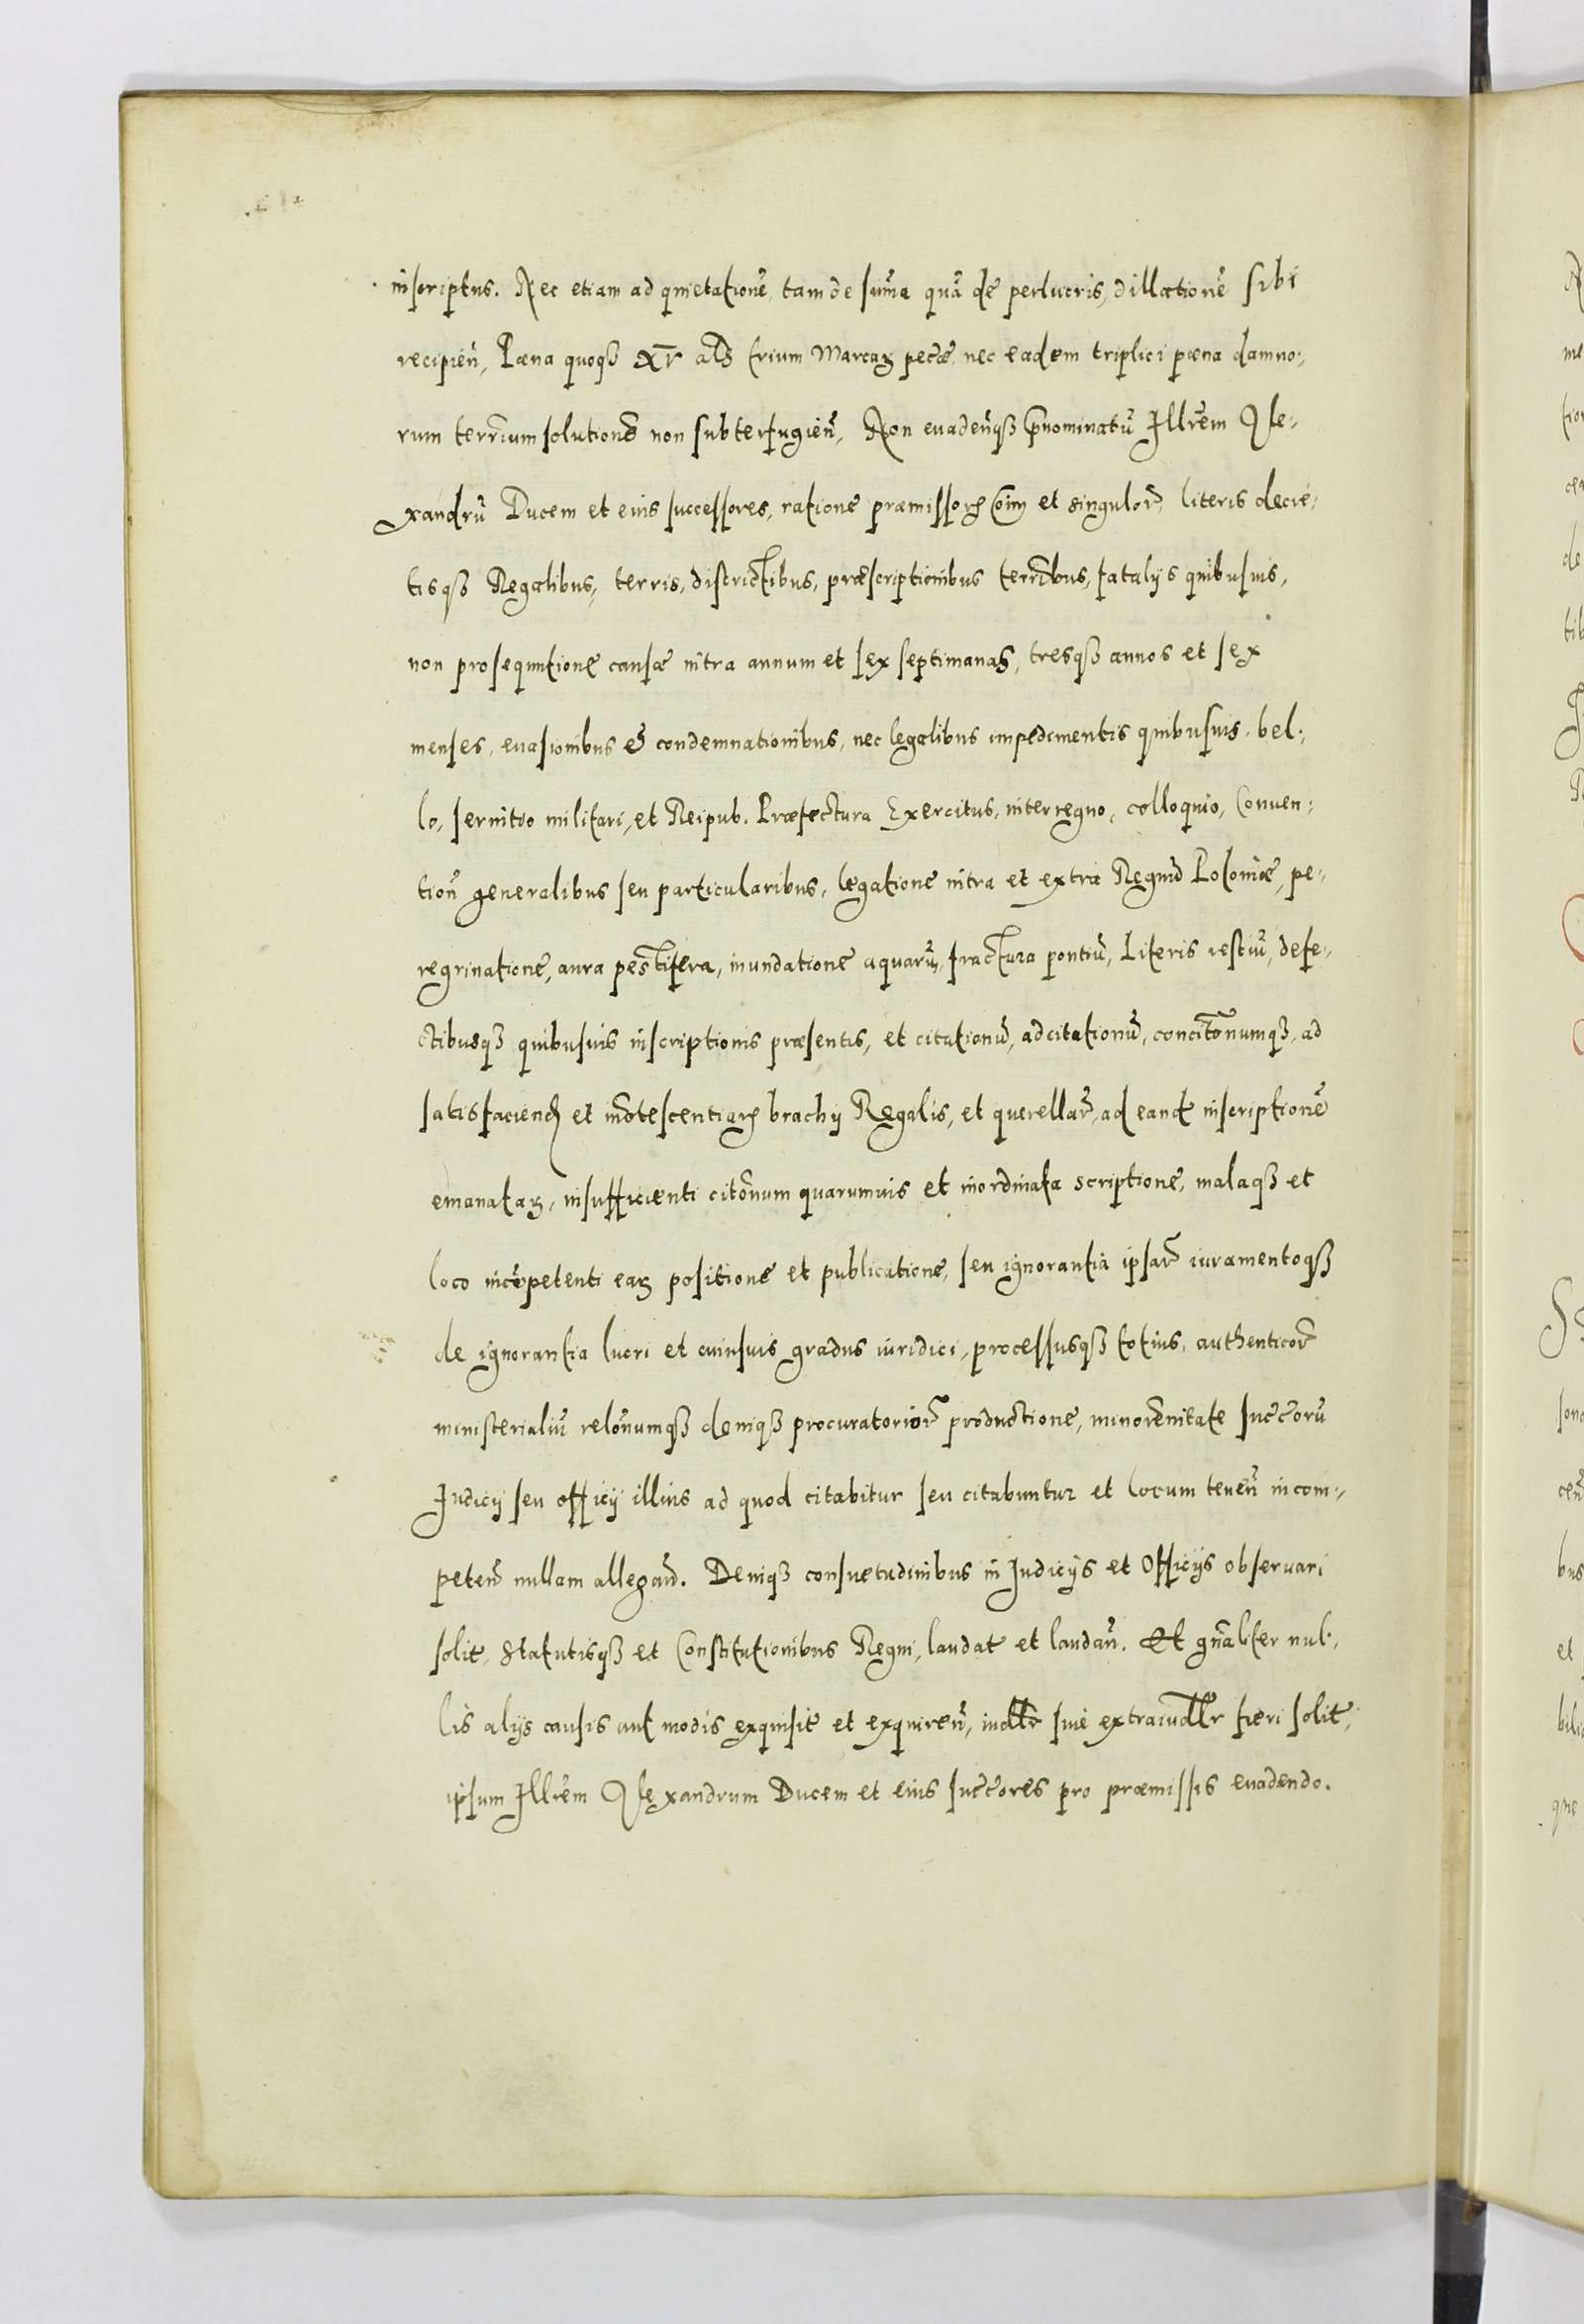 inscriptus. Nec etiam ad quietationē, tam de sum̄a quā de perlucris, dillationē sibi
recipień, Pæna quoqȝ XV als trium Marcaȝ pectæ nec eadem triplici pæna damno:,
rum terr̄ium solutione non subterfugień, Non euadeńqȝ p̄nominatū Illr̄em Ale:,
xandrū Ducem et eius successores, ratione præmissoꝝ oīm et singulor̃, literis decre:,
tisqȝ Regalibus, terris, districtibus, præscriptionibus terr̄ibus, fatalijs quibusuis,
non prosequutione causæ intra annum et sex septimanas, tresqȝ annos et sex
menses, euasionibus & condemnationibus, nec legalibus impedimentis quibusuis, bel:,
lo, seruitio militari, et Reipub. Præfectura Exercitus, interregno, colloquio, Conuen:,
tioń generalibus seu particularibus, legatione intra et extra Regnū Poloniæ, pe:,
regrinatione, aura pestifera, inundatione aquarū, fractura pontiū, Literis restiū, defe:,
ctibusqȝ quibusuis inscriptionis præsentis, et citationū, adcitationū, concitōnumqȝ, ad
satisfaciend et inotescentiaꝝ brachij Regalis, et querellar̃, ad eand inscriptionē
emanataȝ, insufficienti citōnum quarumuis et inordinata scriptione, malaqȝ et
loco incōpetenti eaȝ positione et publicatione, seu ignorantia ipsar̃ iuramentoqȝ
de ignorantia lucri et cuiusuis gradus iuridici, processusqȝ totius, authenticor̃
ministerialiū relōnumqȝ deniqȝ procuratorior̃ productione, minorennitate succ̄orū
Judicij seu officij illius ad quod citabitur seu citabuntur et locum teneń incom:,
peteń nullam allegań. Deniqȝ consuetudinibus in Judicijs et Officijs obseruari
solit, Statutisqȝ et Constitutionibus Regni, laudat et laudań. Et gn̄aliter nul:,
lis alijs causis aut modis exquisit et exquireń, iud̄llr siue extraiud̄llr fieri solit,
ipsum Illr̄em Alexandrum Ducem et eius succ̄ores pro præmissis euadendo.